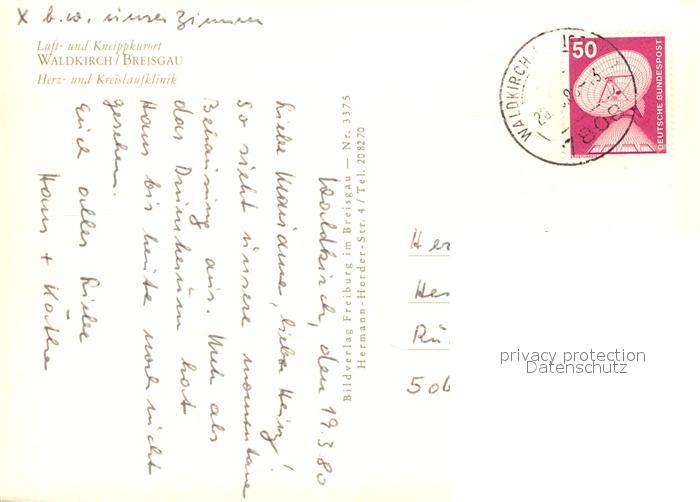 x b.w. unser Zimmer
Luft- und Kneippkurort
WALDKIRCH / BREISGAU
Herz- und Kreislaufklinik
Waldkirch, den 19.3.80
Liebe Marianne, lieber Heinz!
So sieht unsere momentane
Behausung aus. Mehr als
das Drumherum hat
Hans bis heute noch nicht
gesehen.
Euch alles Liebe
Hans + Käthe
Bildverlag Freiburg im Breisgau — Nr. 3375
Hermann-Herder-Str. 4 / Tel. 208270
WALDKIRCH
7808
50
DEUTSCHE BUNDESPOST
privacy protection
Datenschutz